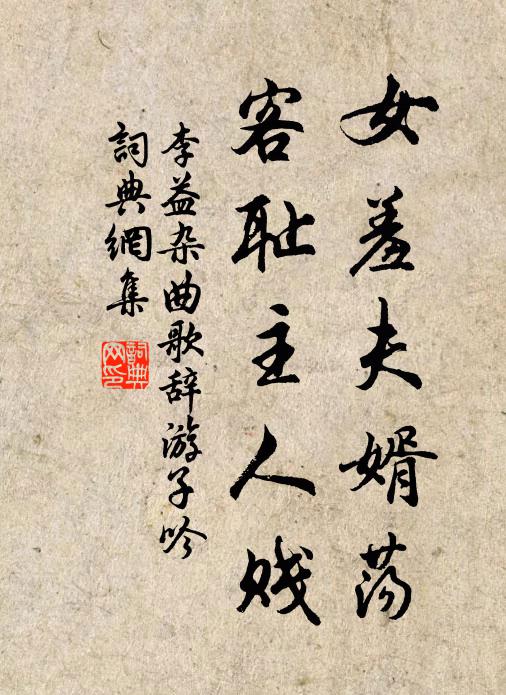 女羞夫婿荡
客耻主人贱
李益杂曲歌辞游子吟
詞典網集
詞典网印